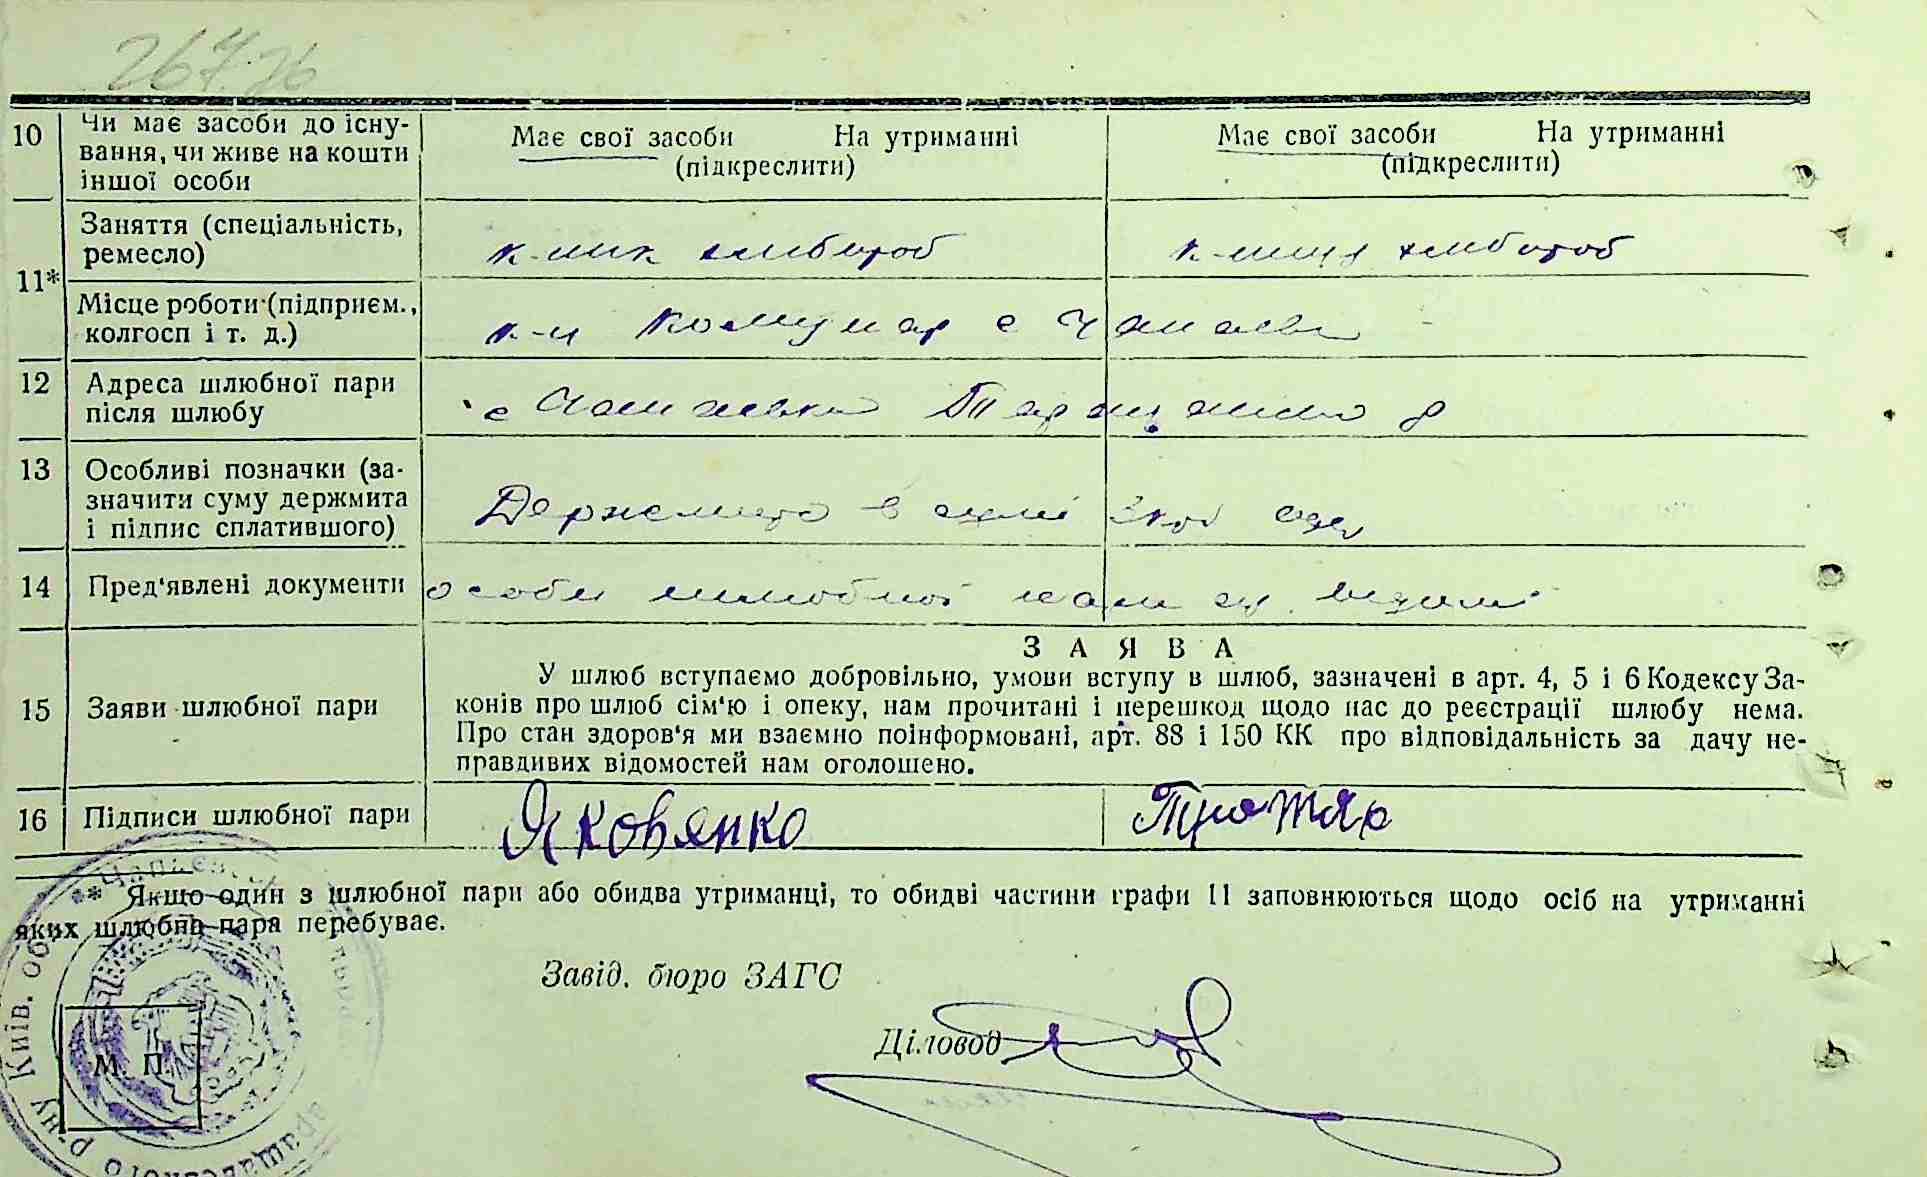 26776
10 Чи має засоби до існу-
вання, чи живе на кошти
іншої особи
Має свої засоби На утриманні
(підкреслити)
Має свої засоби На утриманні
(підкреслити)
11*
Заняття (спеціальність,
ремесло)
к-ник хлібороб
к-ниця хлібороб
Місце роботи (підприєм.,
колгосп і т. д.)
к-п Комунар с Чапаєвка
12 Адреса шлюбної пари
після шлюбу
с Чапаєвка
13 Особливі позначки (за-
значити суму держмита
і підпис сплатившого)
Держмито в сумі 3 крб
14 Пред'явлені документи
особи шлюбної пари відомі
15 Заяви шлюбної пари
ЗАЯВА
У шлюб вступаємо добровільно, умови вступу в шлюб, зазначені в арт. 4, 5 і 6 Кодексу За-
конів про шлюб сім'ю і опеку, нам прочитані і перешкод щодо нас до реєстрації шлюбу нема.
Про стан здоров'я ми взаємно поінформовані, арт. 88 і 150 КК про відповідальність за дачу не-
правдивих відомостей нам оголошено.
16 Підписи шлюбної пари
Яковенко
** Якщо один з шлюбної пари або обидва утриманці, то обидві частини графи 11 заповнюються щодо осіб на утриманні
яких шлюбна пара перебуває.
Завід. бюро ЗАГС
Діловод
М. П.
р-ну Київ. об